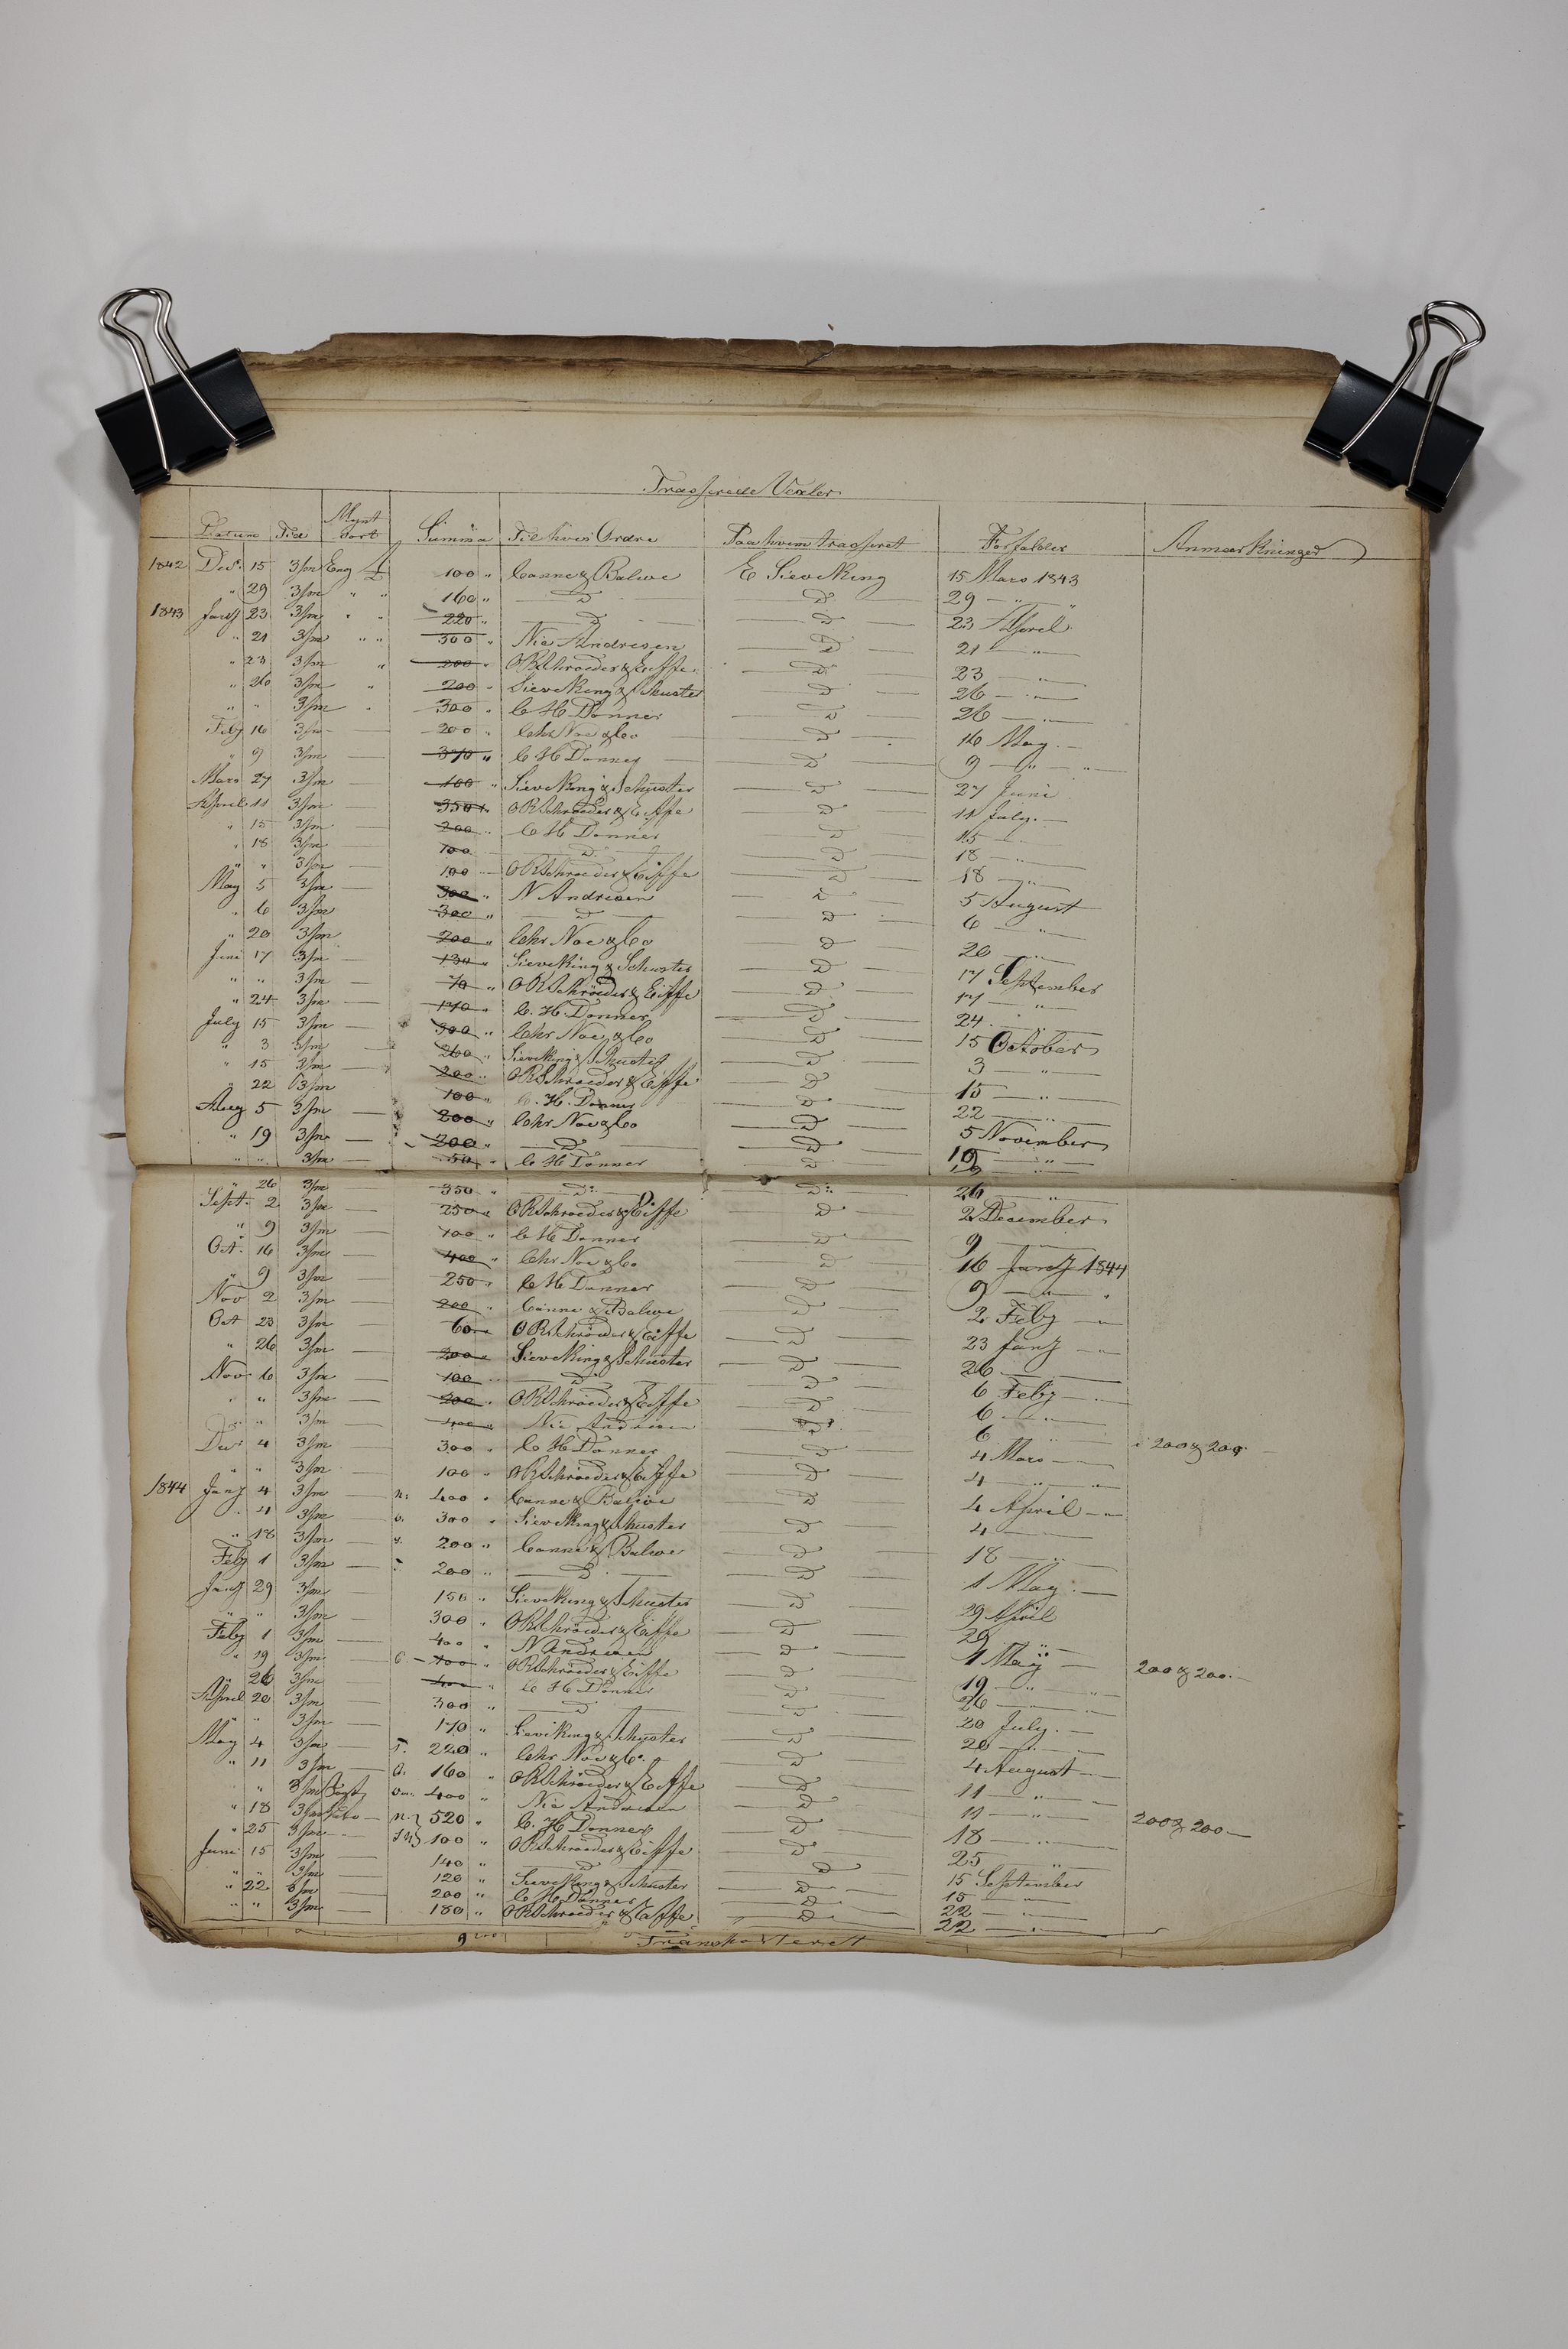 Trasserede Vexler
Datum Tid Mynt Sort Summa Til hvis Ordre Paa hvem trasseret Forfalder Anmærkninger
1842 Decr. 15 3/m Eng £ 100 " Canne & Balwe E Sieveking 15 Mars 1843
" 29 3/m " " 160 " D D 29 — "
1843 Janʒ 23 3/m " " 220 " D D 23 April
" 21 3/m " " 300 " Nic Andresen D 21 — "
" 23 3/m " 200 " O R Schroeder & Eiffe D 23 — "
" 26 3/m " 200 " Sieveking & Schuster D 26 — "
" " 3/m " 300 " C H Donner D 26 — "
Febʒ 16 3/m 200 " Chr Noe & Co D 16 May
" 9 3/m — 370 " C H Donner D 9 — "
Mars 27 3/m — 100 " Sieveking & Schuster D 27 Juni
April 11 3/m — 350 " O R Schroeder & Eiffe D 11 July
" 15 3/m — 200 " C H Donner D 15 — "
" 18 3/m — 100 D D 18 — "
" " 3/m 100 O R Schroeder & Eiffe D 18 — "
May 5 3/m — 300 " N Andresen D 5 August
" 6 3/m 300 " D D 6 — "
" 20 3/m 200 " Chr Noe & Co D 20 — "
Juni 17 3/m — 130 " Sieveking & Schuster D 17 September
" " 3/m — 70 " O R Schröeder & Eiffe D 17 — "
" 24 3/m — 170 " C. H Donner D 24 "
July 15 3/m — 300 " Chr Noe & Co D 15 October
" 3 3/m — 260 " Sieveking & Schuster D 3 — "
" 15 3/m 200 " O R Schroeder & Eiffe D 15 — "
" 22 3/m 100 " C. H. Donner D 22 — "
Aug 5 3/m — 200 " Chr Noe & Co D 5 November
" 19 3/m — 200 " D D 19 — "
" " 3/m 50 " C H Donner D 19 "
" 26 3/m 350 " Do D 26 "
Sept. 2 3/m — 250 " O R Schroeder & Eiffe D 2 December
" 9 3/m — 100 " C H Donner D 9 —
Oct. 16 3/m — 400 " Chr Noe & Co D 16 Janʒ 1844
" 9 3/m — 250 " C H Donner D 9 — "
Nov 2 3/m — 200 " Canne & Balwe D 2 Febʒ —
Oct 23 3/m — 60 O R Schröeder & Eiffe D 23 Janʒ —
" 26 3/m — 200 " Sieveking & Schuster D 26 —
Nov 6 3/m — 100 D D 6 Febʒ —
" " 3/m — 200 " O R Schroeder & Eiffe D 6 — "
" " 3/m — 400 " Nic Andresen D 6 — " 200 & 200
Decr 4 3/m — 300 " C H Donner D 4 Mars —
" " 3/m — 100 " O R Schroeder & Eiffe D 4 — "
1844 Janʒ 4 3/m — 400 " Canne & Balwe D 4 April —
" 4 3/m — 300 " Sieveking & Schuster D 4 —
" 18 3/m — 200 " Canne & Balwe D 18 — "
Febʒ 1 3/m — 200 " D D 1 May —
Janʒ 29 3/m — 150 " Sieveking & Schuster D 29 April
" " 3/m — 300 " O R Schröeder & Eiffe D 29 "
Febʒ 1 3/m — 400 " N Andresen D 1 May — 200 & 200 —
" 19 3/m — 400 " O R Schröeder & Eiffe D 19 — "
" 26 3/m — 400 " C H Donner D 26 — "
April 20 3/m — 300 " D D 20 July —
" " 3/m — 170 " Sieveking & Schuster D 20 — "
May 4 3/m — 220 " Chr Noe & Co D 4 August —
" 11 3/m — 160 " O R Schröeder & Eiffe D 11 — "
" " 3/m 400 " Nic Andresen D 11 — " 200 & 200 —
" 18 3/m — 520 " C. H Donner D 18 — "
" 25 3/m — 100 " O R Schroeder & Eiffe D 25 "
Juni 15 3/m — 140 " D D 15 September
" " 3/m — 120 " Sieveking & Schuster D 15 — "
" 22 3/m — 200 " C H Donner D 22 — "
" " 3/m — 180 " O R Schroeder & Eiffe D 22 — "
Transporteret